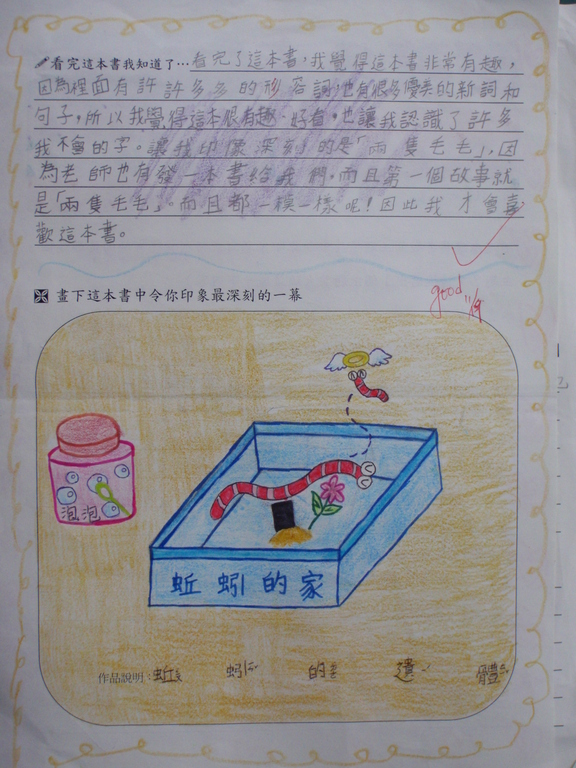 看完這本書我知道了…看完了這本書,我覺得這本書非常有趣,
因為裡面有許許多多的形容詞,也有很多優美的新詞和
句子,所以我覺得這本很有趣、好看,也讓我認識了許多
我不會的字。讓我印像深刻的是「兩隻毛毛」,因
為老師也有發一本書給我們,而且第一個故事就
是「兩隻毛毛」。而且都一模一樣呢!因此我才會喜
歡這本書。
good 11/9
畫下這本書中令你印象最深刻的一幕
泡泡
蚯蚓的家
作品說明:蚯蚓的遺體